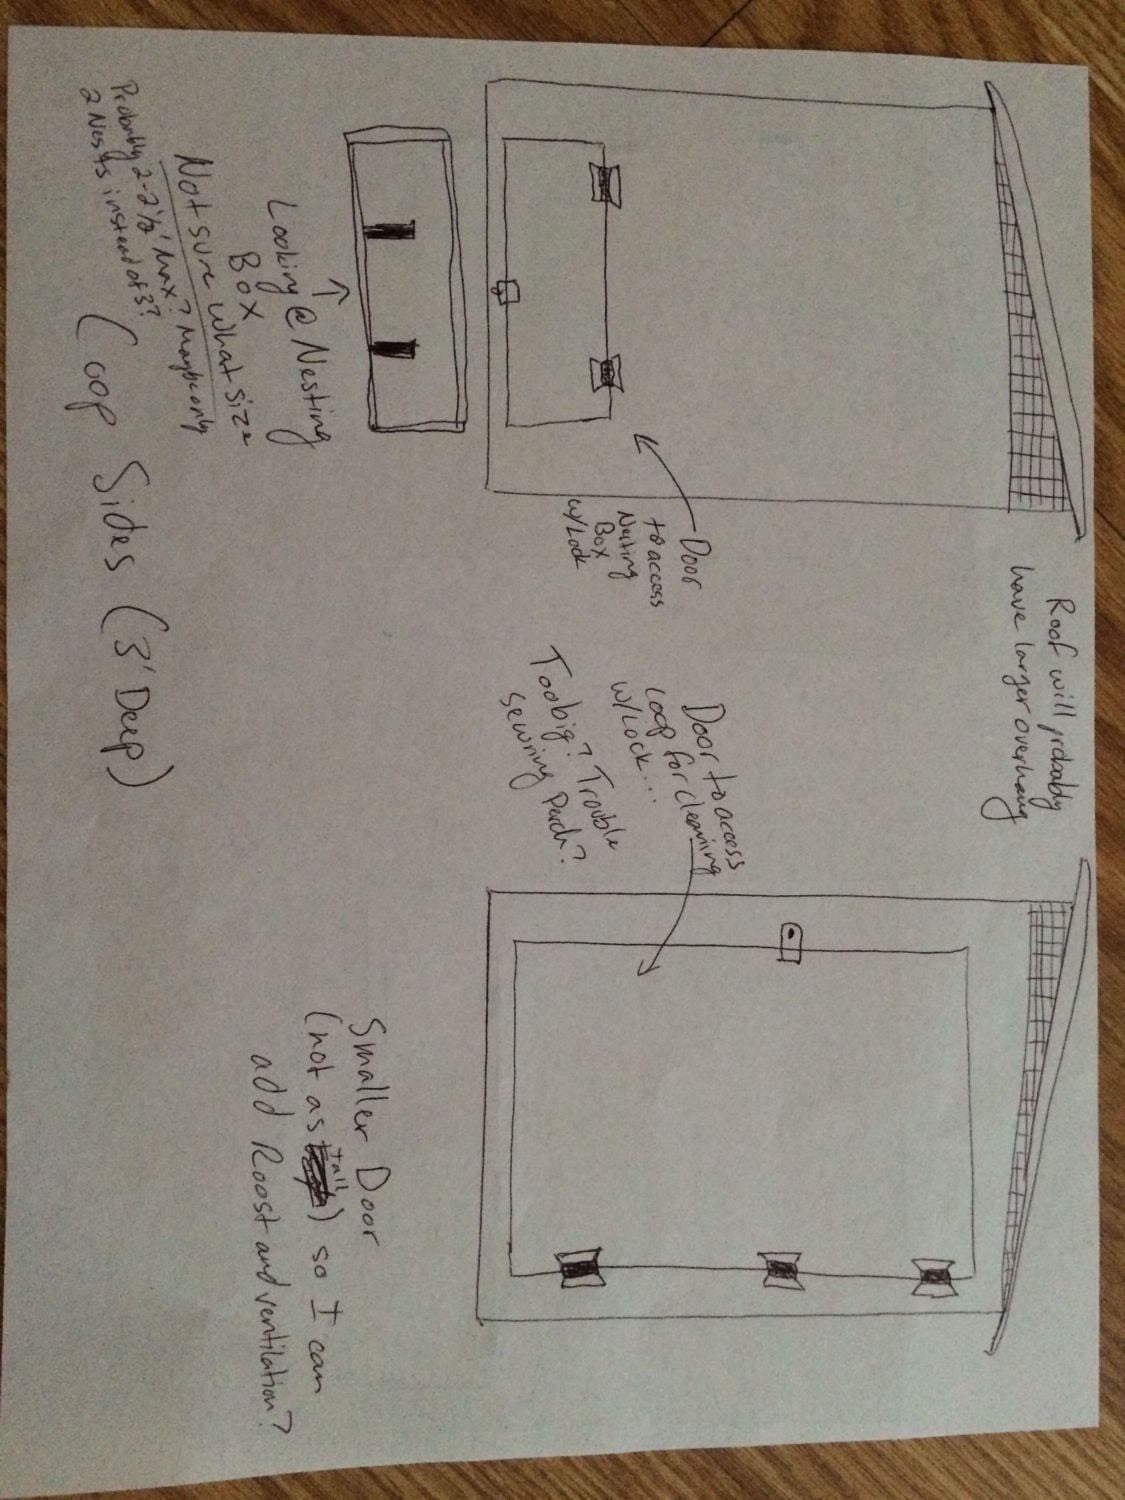 Roof will probably
have larger overhang
Door
to access
Nesting
Box
w/Lock
Door to access
coop for cleaning
w/Lock....
Too big? Trouble
securing perch?
Looking @ Nesting
Box
Not sure what size
Probably 2-2½' Max? Maybe only
2 Nests instead of 3?
Smaller Door
(not as tall) so I can
add Roost and ventilation?
Coop Sides (3' Deep)